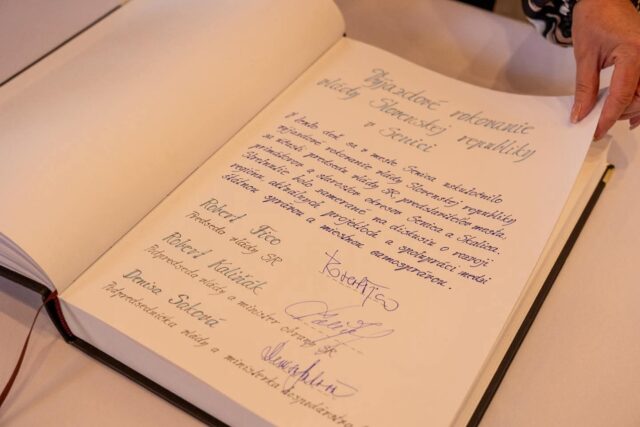 Výjazdové rokovanie
vlády Slovenskej republiky
v Senici
V tento deň sa v meste Senica uskutočnilo
výjazdové rokovanie vlády Slovenskej republiky
za účasti predsedu vlády SR, predstaviteľov mesta,
primátorov a starostov okresov Senica a Skalica.
Stretnutie bolo zamerané na diskusiu o rozvoji
regiónu, aktuálnych projektoch a spolupráci medzi
štátnou správou a miestnou samosprávou.
Robert Fico
Predseda vlády SR
Robert Kaliňák
Podpredseda vlády a minister obrany SR
Denisa Saková
Podpredsedníčka vlády a ministerka hospodárstva